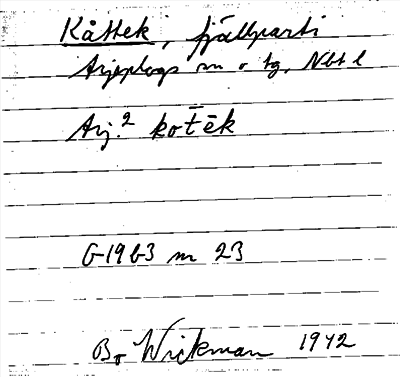 Kåttek, fjällparti
Arjeplogs sn o tg, Nbt l
Arj.² kot̄ēk
G 1963 nr 23
Bo Wickman 1942